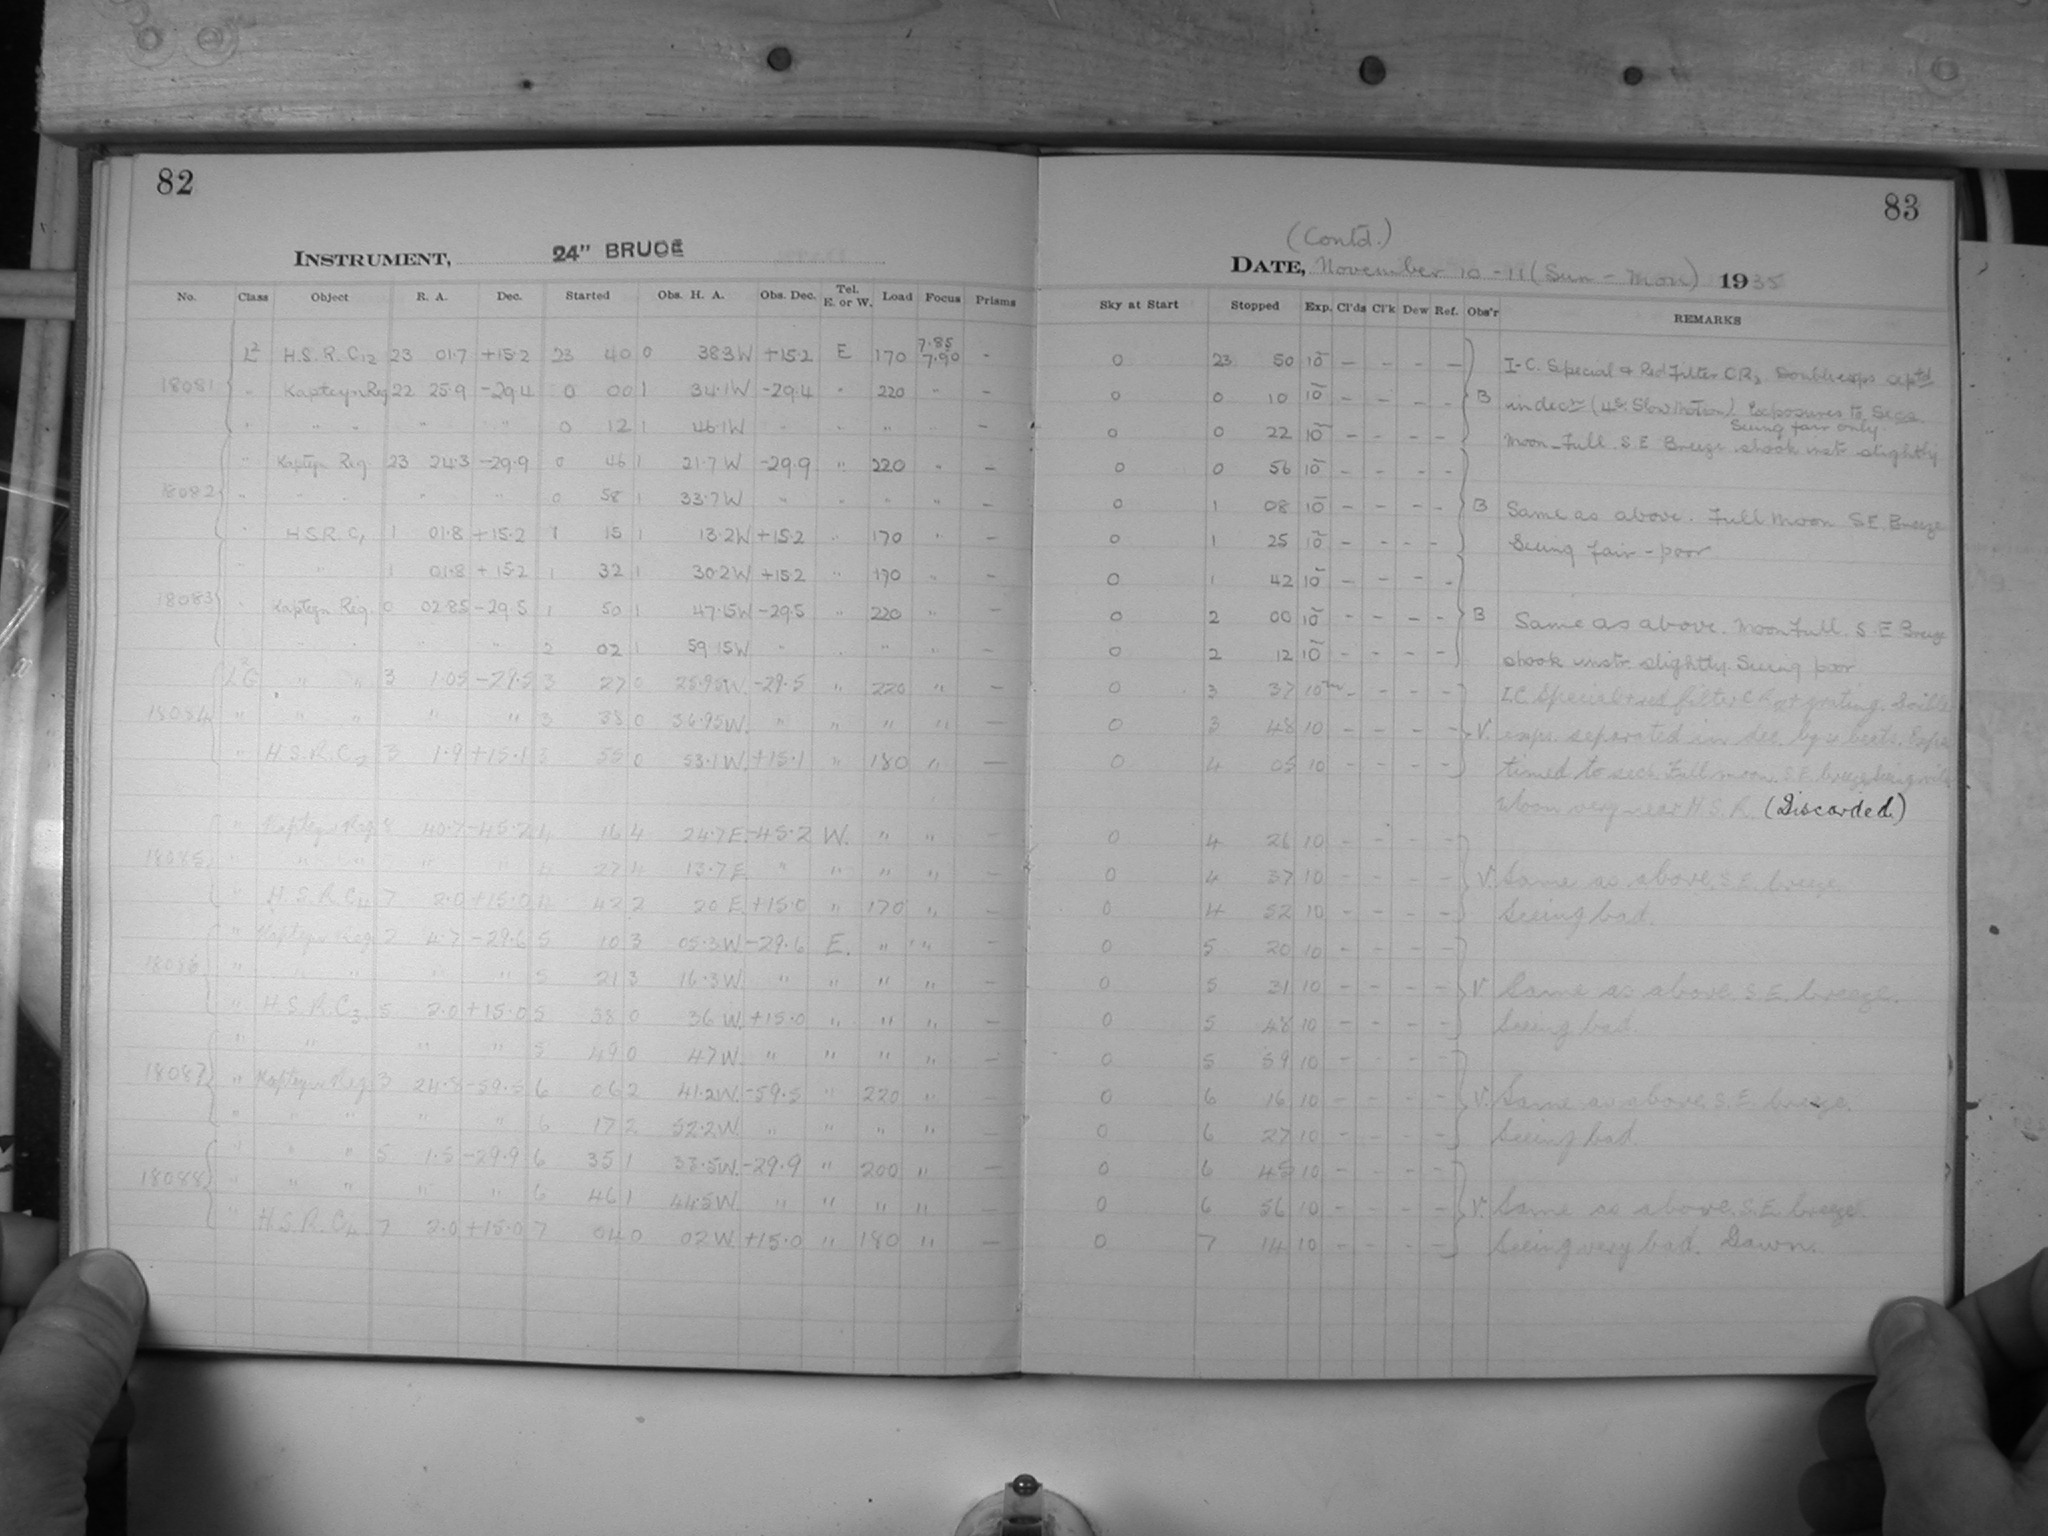 82
INSTRUMENT, 24" BRUCE
No. Class Object R. A. Dec. Started Obs. H. A. Obs. Dec. Tel. E. or W. Load Focus Prisms
L2 H.S.R. C12 23 01.7 +15.2 23 40 0 38.3W +15.2 E 170 7.85 7.90 -
18081 " Kapteyn Reg 22 25.9 -29.4 0 00 1 34.1W -29.4 " 220 " -
" " " " " 0 12 1 46.1W " " " " -
" Kapteyn Reg. 23 24.3 -29.9 0 46 1 21.7W -29.9 " 220 " -
18082 " " " " " 0 58 1 33.7W " " " " -
" H.S.R. C1 1 01.8 +15.2 1 15 1 13.2W +15.2 " 170 " -
" " 1 01.8 +15.2 1 32 1 30.2W +15.2 " 170 " -
18083 " Kapteyn Reg. 0 02.85 -29.5 1 50 1 47.15W -29.5 " 220 " -
" " " " 2 02 1 59.15W " " " " -
L2G " " 3 1.05 -29.5 3 27 0 25.95W. -29.5 " 220 " -
18084 " " " " " 3 38 0 36.95W. " " " " -
" H.S.R. C2 3 1.9 +15.1 3 55 0 53.1W. +15.1 " 180 " -
" Kapteyn Reg. 8 40.7 -45.2 4 16 4 24.7E. -45.2 W. " " -
18085 " " " " " 4 27 4 13.7E " " " " -
" H.S.R. C4 7 2.0 +15.0 4 42 2 20 E. +15.0 " 170 " -
" Kapteyn Reg. 2 4.7 -29.6 5 10 3 05.3W -29.6 E. " " -
18086 " " " " " 5 21 3 16.3W. " " " " -
" H.S.R. C3 5 2.0 +15.0 5 38 0 36 W. +15.0 " " " -
" " " " 5 49 0 47W. " " " " -
18087 " Kapteyn Reg. 3 24.8 -59.5 6 06 2 41.2W. -59.5 " 220 " -
" " " " " 6 17 2 52.2W. " " " " -
" " " 5 1.5 -29.9 6 35 1 33.5W. -29.9 " 200 " -
18088 " " " " " 6 46 1 44.5W. " " " " -
" H.S.R. C4 7 2.0 +15.0 7 04 0 02W. +15.0 " 180 " -
83
(Contd.)
DATE, November 10-11 (Sun - Mon) 1935
Sky at Start Stopped Exp. Cl'ds Cl'k Dew Ref. Obs'r REMARKS
0 23 50 10m - - - - I-C. Special & Red Filter CR2 Double exps septd
0 0 10 10 - - - - B in decn (4s. Slow Motion) Exposures to Secs.
Seeing fair only.
0 0 22 10 - - - - Moon-Full. S E Breeze shook instr slightly
0 0 56 10 - - - -
0 1 08 10 - - - - B Same as above. Full Moon S.E. Breeze
0 1 25 10 - - - - Seeing fair-poor
0 1 42 10 - - - -
0 2 00 10 - - - - B Same as above. Moon Full. S.E Breeze
0 2 12 10 - - - - shook instr. slightly. Seeing poor
0 3 37 10m - - - - I.C. Special & red filter + grating. Double
0 3 48 10 - - - - V. exps. separated in dec. by beats. Exps
0 4 05 10 - - - - timed to secs. Full moon. S.E. breeze. Seeing
Moon very near H.S.R. (Discarded.)
0 4 26 10 - - - -
0 4 37 10 - - - - V. Same as above. S.E. breeze.
0 4 52 10 - - - - Seeing bad.
0 5 20 10 - - - -
0 5 31 10 - - - - V Same as above. S.E. breeze.
0 5 48 10 - - - - Seeing bad.
0 5 59 10 - - - -
0 6 16 10 - - - - V. Same as above. S.E. breeze.
0 6 27 10 - - - - Seeing bad.
0 6 45 10 - - - -
0 6 56 10 - - - - V. Same as above. S.E. breeze.
0 7 14 10 - - - - Seeing very bad. Dawn.